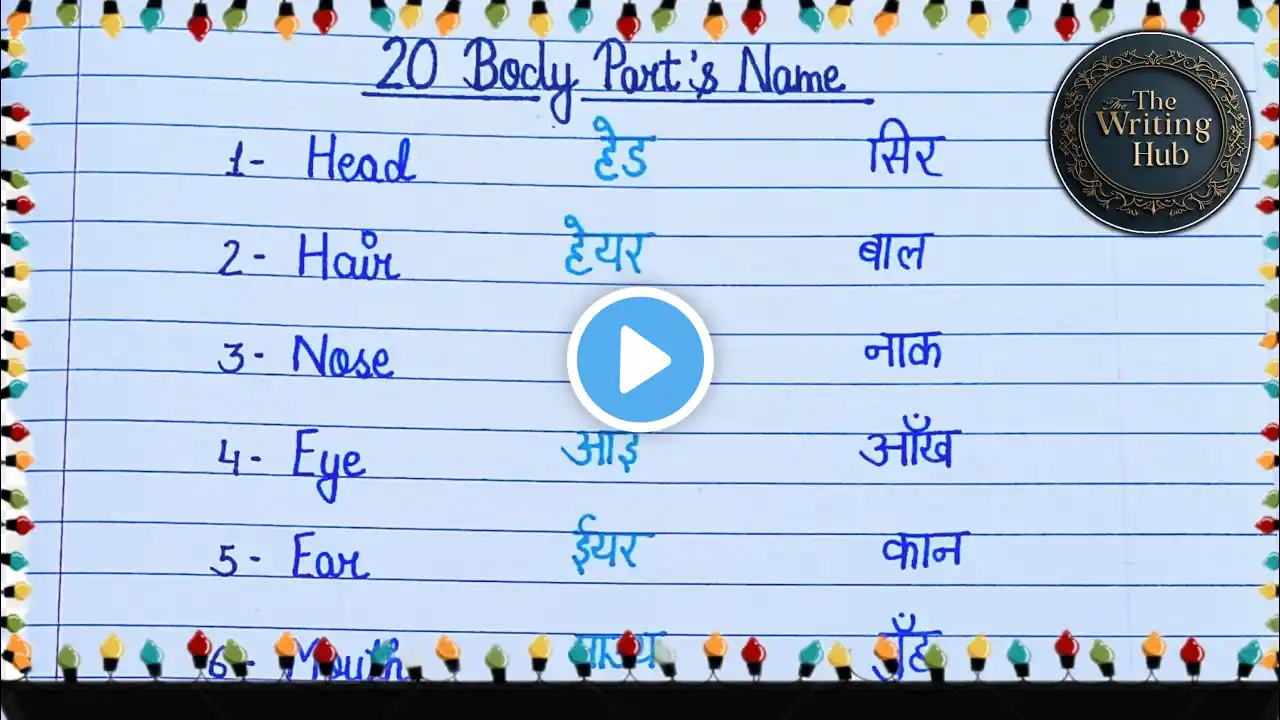 20 Body Part's Name
1- Head हेड सिर
2- Hair हेयर बाल
3- Nose नाक
4- Eye आइ आँख
5- Ear ईयर कान
6- Mouth मुँह
The Writing Hub